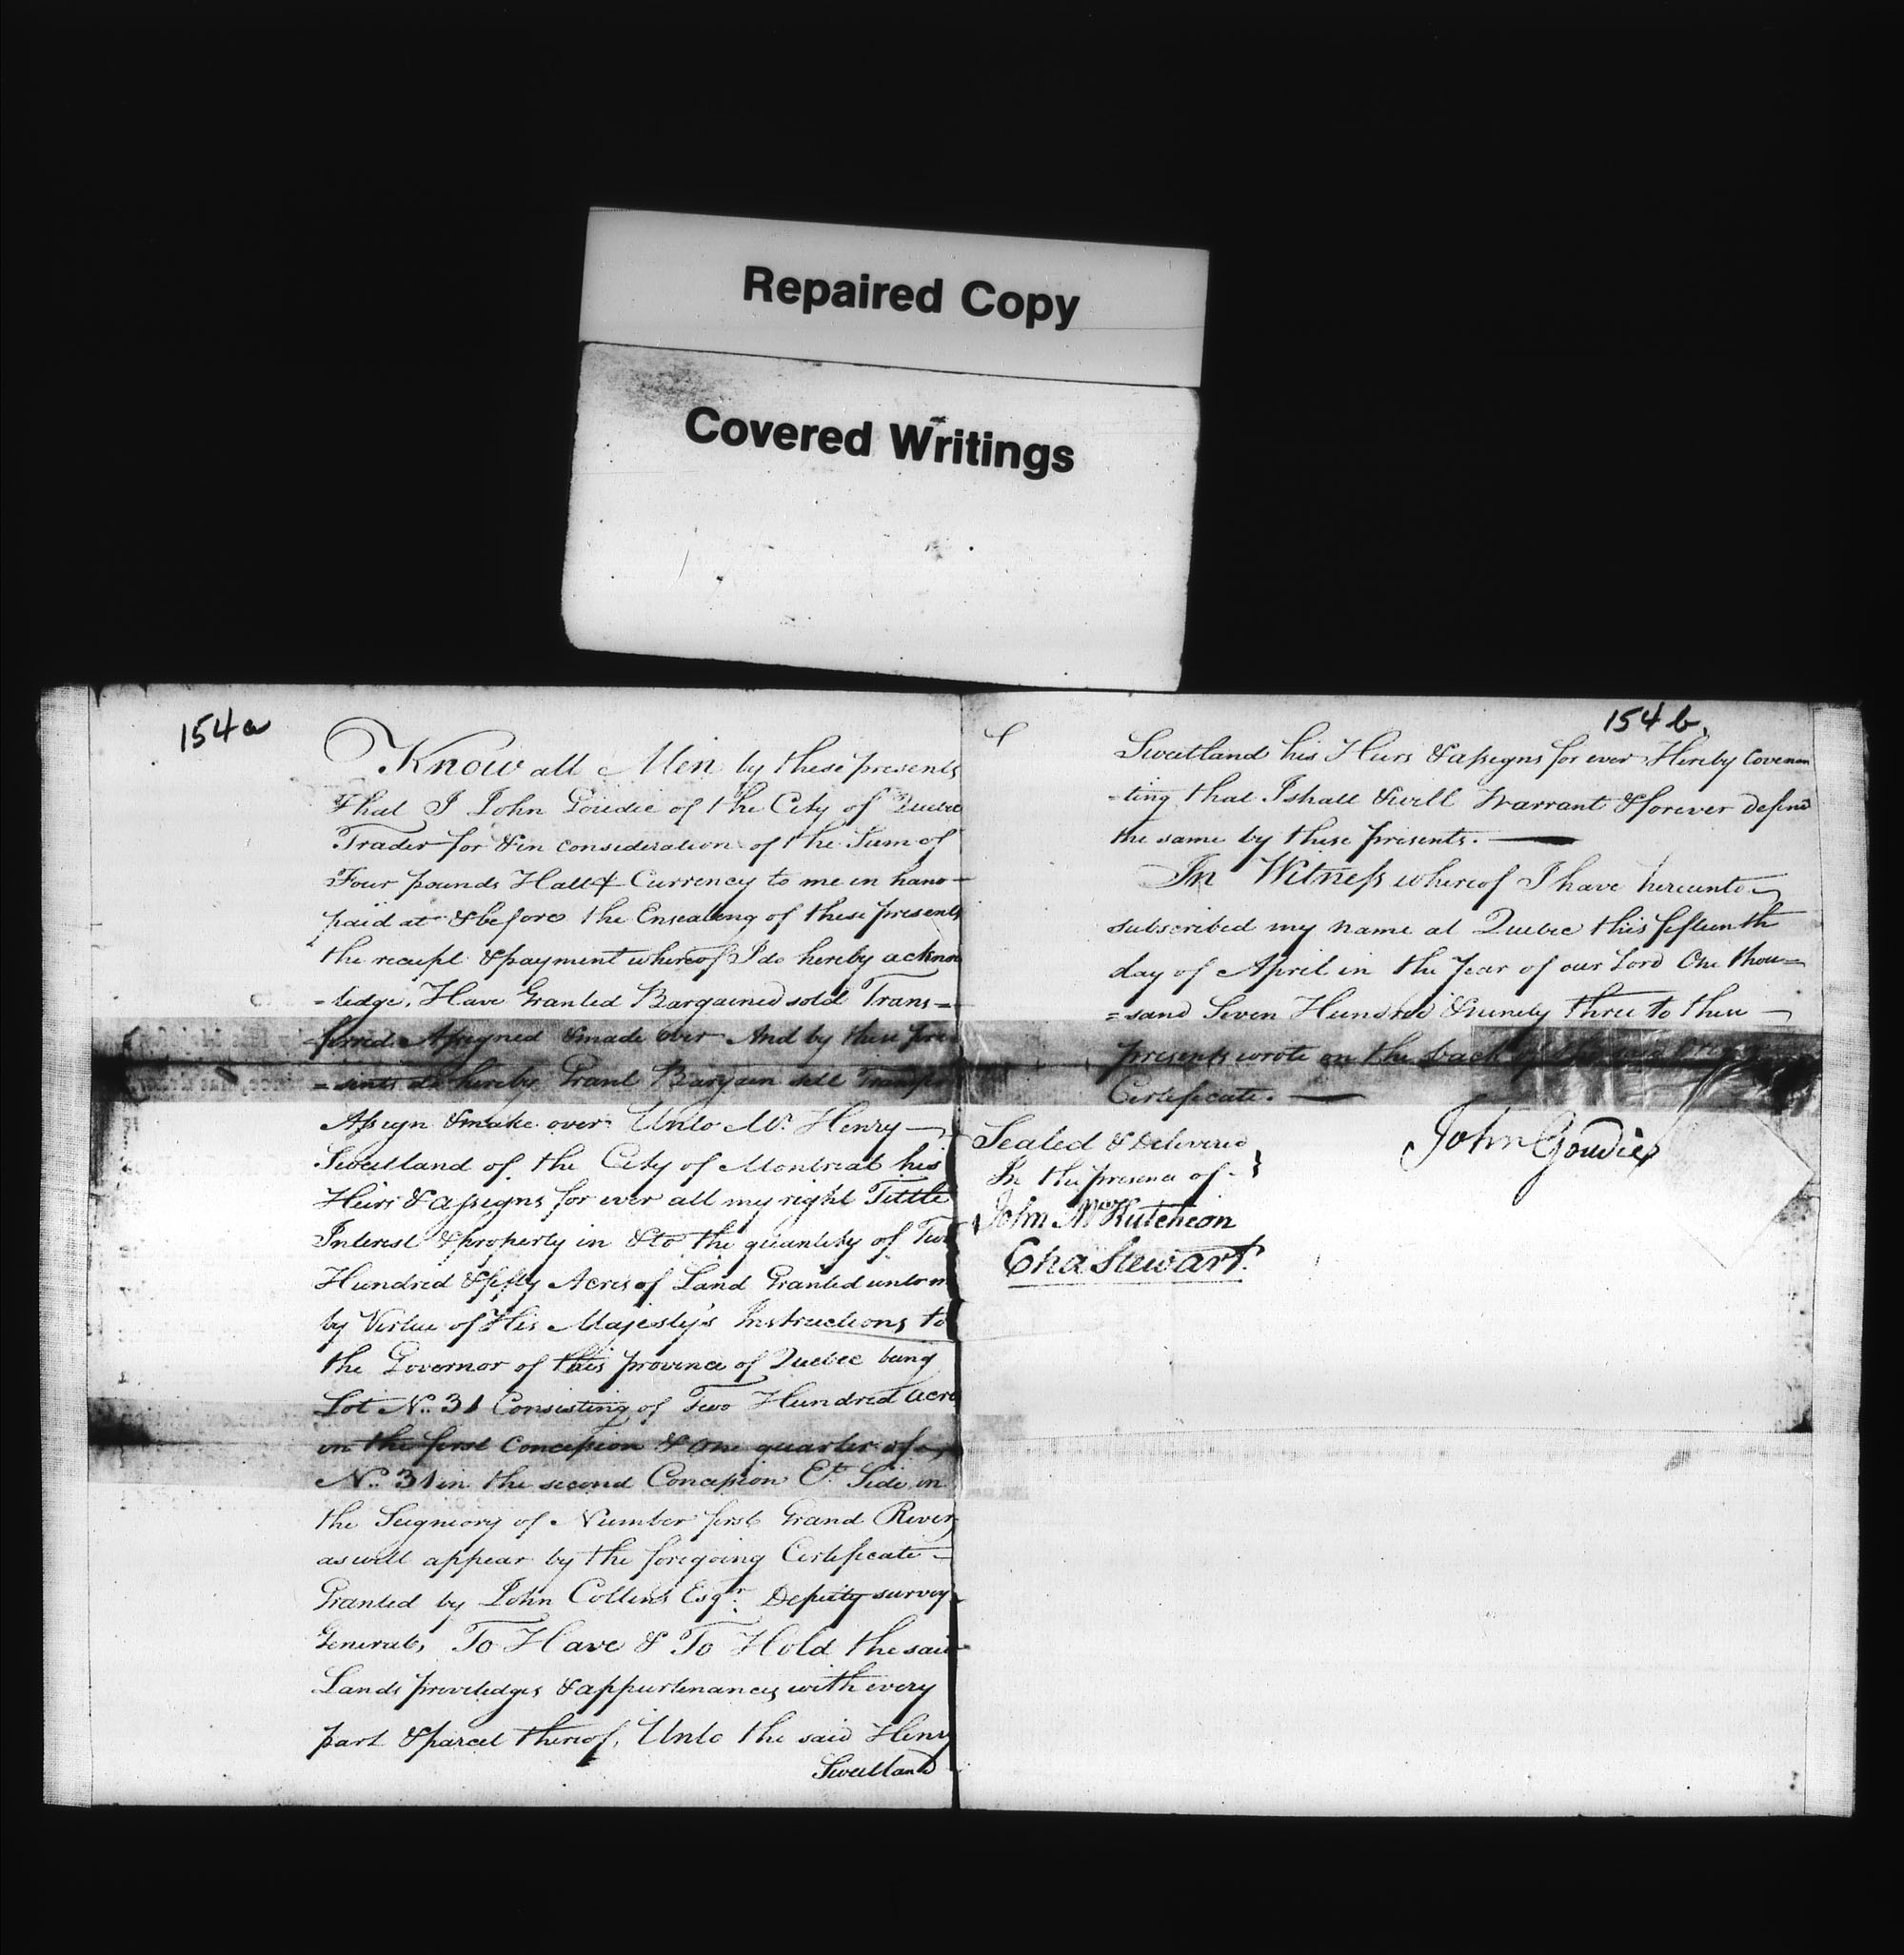 Repaired Copy
Covered Writings
154a
Know all Men by these presents
That I John Goudie of the City of Quebec
Trader for & in consideration of the Sum of
Four pounds Half Currency to me in hand
paid at & before the Ensealing of these presents
the receipt & payment whereof I do hereby acknow
=ledge, Have Granted Bargained sold Trans=
ferred Assigned & made over And by these pre
=sents do hereby Grant Bargain sell Transfer
Assign & make over Unto Mr. Henry
Sweetland of the City of Montreal his
Heirs & assigns for ever all my right Tittle
Interest & property in & to the quantity of Two
Hundred & fifty Acres of Land Granted unto m
by Virtue of His Majesty's Instructions to
the Governor of this province of Quebec being
Lot No. 31 Consisting of Two Hundred acre
in the first Concession & one quarter of
No. 31 in the second Concession Et. Side in
the Seigniory of Number first Grand River
as will appear by the foregoing Certificate =
Granted by John Collins Esqr. Deputy survey
General, To Have & To Hold the said
Lands priviledges & appurtenances with every
part & parcel thereof, Unto the said Henry
Sweetland
154 b.
Sweetland his Heirs & assigns for ever Hereby Covenan
-ting that I shall & will Warrant & forever defend
the same by these presents.
In Witness whereof I have hereunto
subscribed my name at Quebec this fifteenth
day of April in the Year of our Lord One thou=
=sand Seven Hundred & ninety three to these
presents wrote on the back of
Certificate.
Sealed & Delivered
In the presence of
John McKutcheon
Cha Stewart.
John Goudie